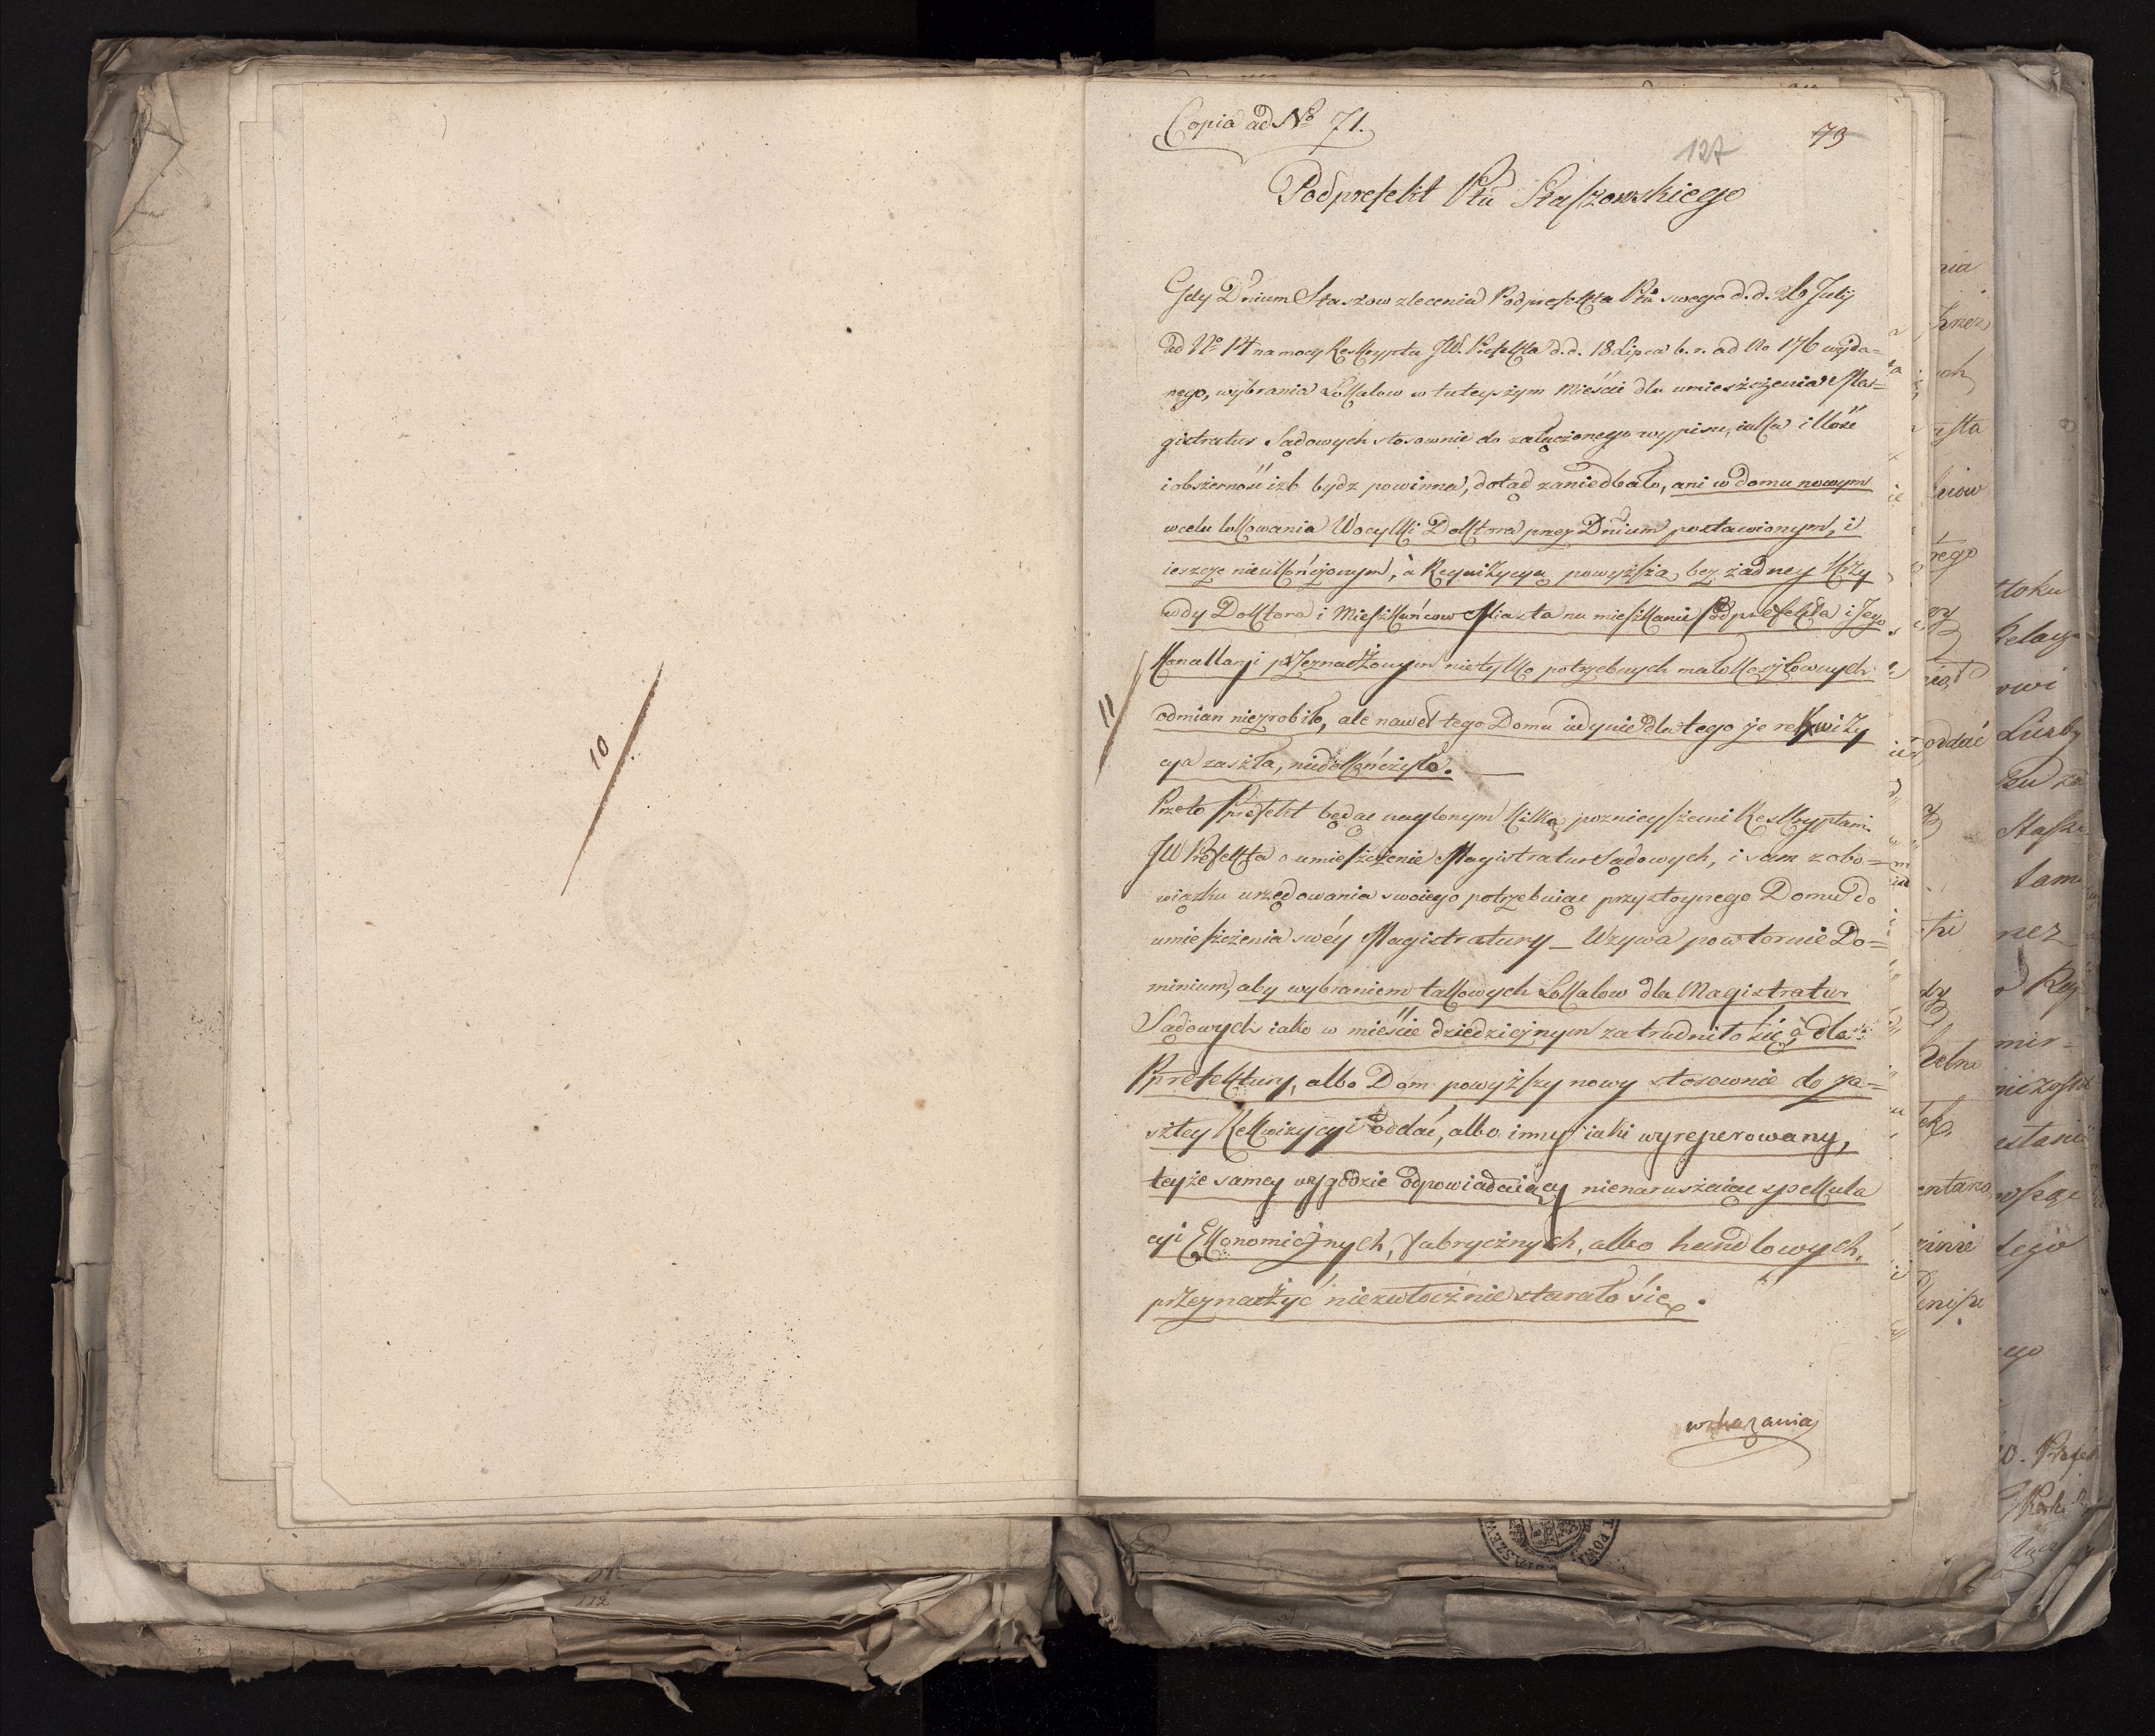 10
Copia ad No 71.
73
127
Podprefekt Pttu Staszowskiego
Gdy Dnium Staszow zlecenia Podprefekta Pttu swego d. d. 26 July
ad No 14 na mocy Reskryptu JW. Prefekta d. d. 18 Lipca b. r. ad No 176 wyda=
nego, wybrania Lokalow w tuteyszym Mieście dla umieszczenia Ma=
gistratur Sądowych stosownie do załączonego wypisu, iaka illość
i obszerność izb bydz powinna, dotąd zaniedbało, ani w domu nowym
w celu lokowania Wocylki Doktora przez Dnium postawionym, i
ieszcze nieukończonym, a Rekwizycyą powyższą bez żadney krzy
wdy Doktora i Mieszkańcow Miasta na mieszkanie Podprefekta i Jego
Kancllaryi przeznaczonym nietylko potrzebnych małokosztownych
odmian niezrobiło, ale nawet tego Domu iedynie dla tego że rekwizy
cya zaszła, niedokończyło.
11
Przeto Pprefekt będąc naglonym kilką poznieyszemi Reskryptami
JW Prefekta o umieszczenie Magistratur Sądowych, i sam z obo=
wiązku urzędowania swoiego potrzebuiąc przystoynego Domu do
umieszczenia swéy Magistratury _ Wzywa powtornie Do=
minium, aby wybraniem takowych Lokalow dla Magistratur
Sądowych iako w mieście dziedzicznym zatrudniło się, a dla
Pprefektury, albo Dom powyższy nowy stosownie do za=
szłey Rekwizycyi oddać, albo inny iaki wyreperowany,
teyże samey wygodzie odpowiadaiący nienaruszaiąc spekula
cyi Ekonomicznych, Fabrycznych, albo handlowych,
przeznaczyć niezwłocznie starało się.
wskazania